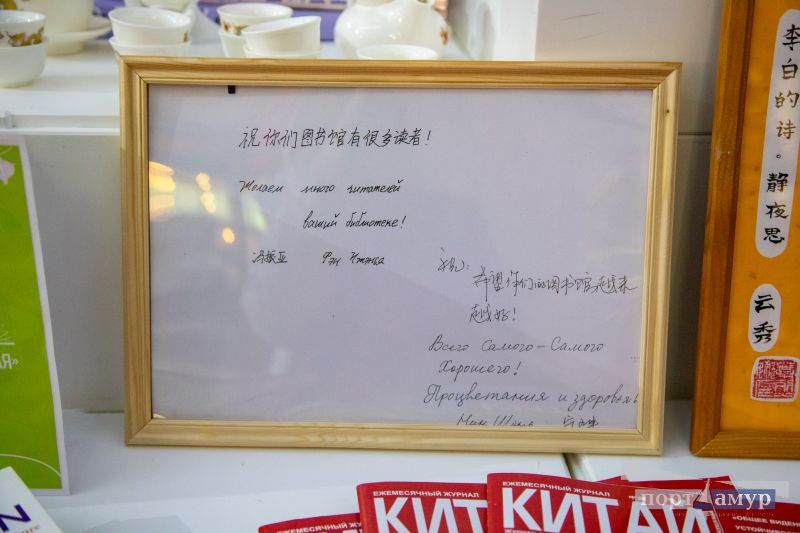 祝你们图书馆有很多读者!
Желаем много читателей
ваший библиотеке!
冯振亚 Фэн
祝:
希望你们的图书馆越来
越好!
Всего Самого-Самого
Хорошего!
Процветания и здоровья
李白的诗。静夜思
云秀
АЯ»
N
ЕЖЕМЕСЯЧНЫЙ ЖУРНАЛ
КИТ
ЕЖЕМЕСЯЧНЫЙ ЖУРНАЛ
КИТАЙ
«ОБЩЕЕ ВИДЕН
УСТОЙЧИВО
порт амур